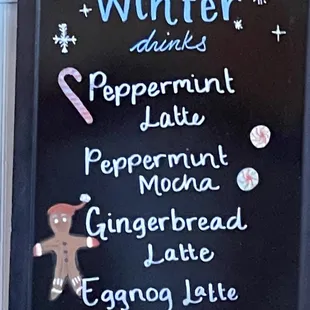 Winter
drinks
Peppermint
Latte
Peppermint
Mocha
Gingerbread
Latte
Eggnog Latte